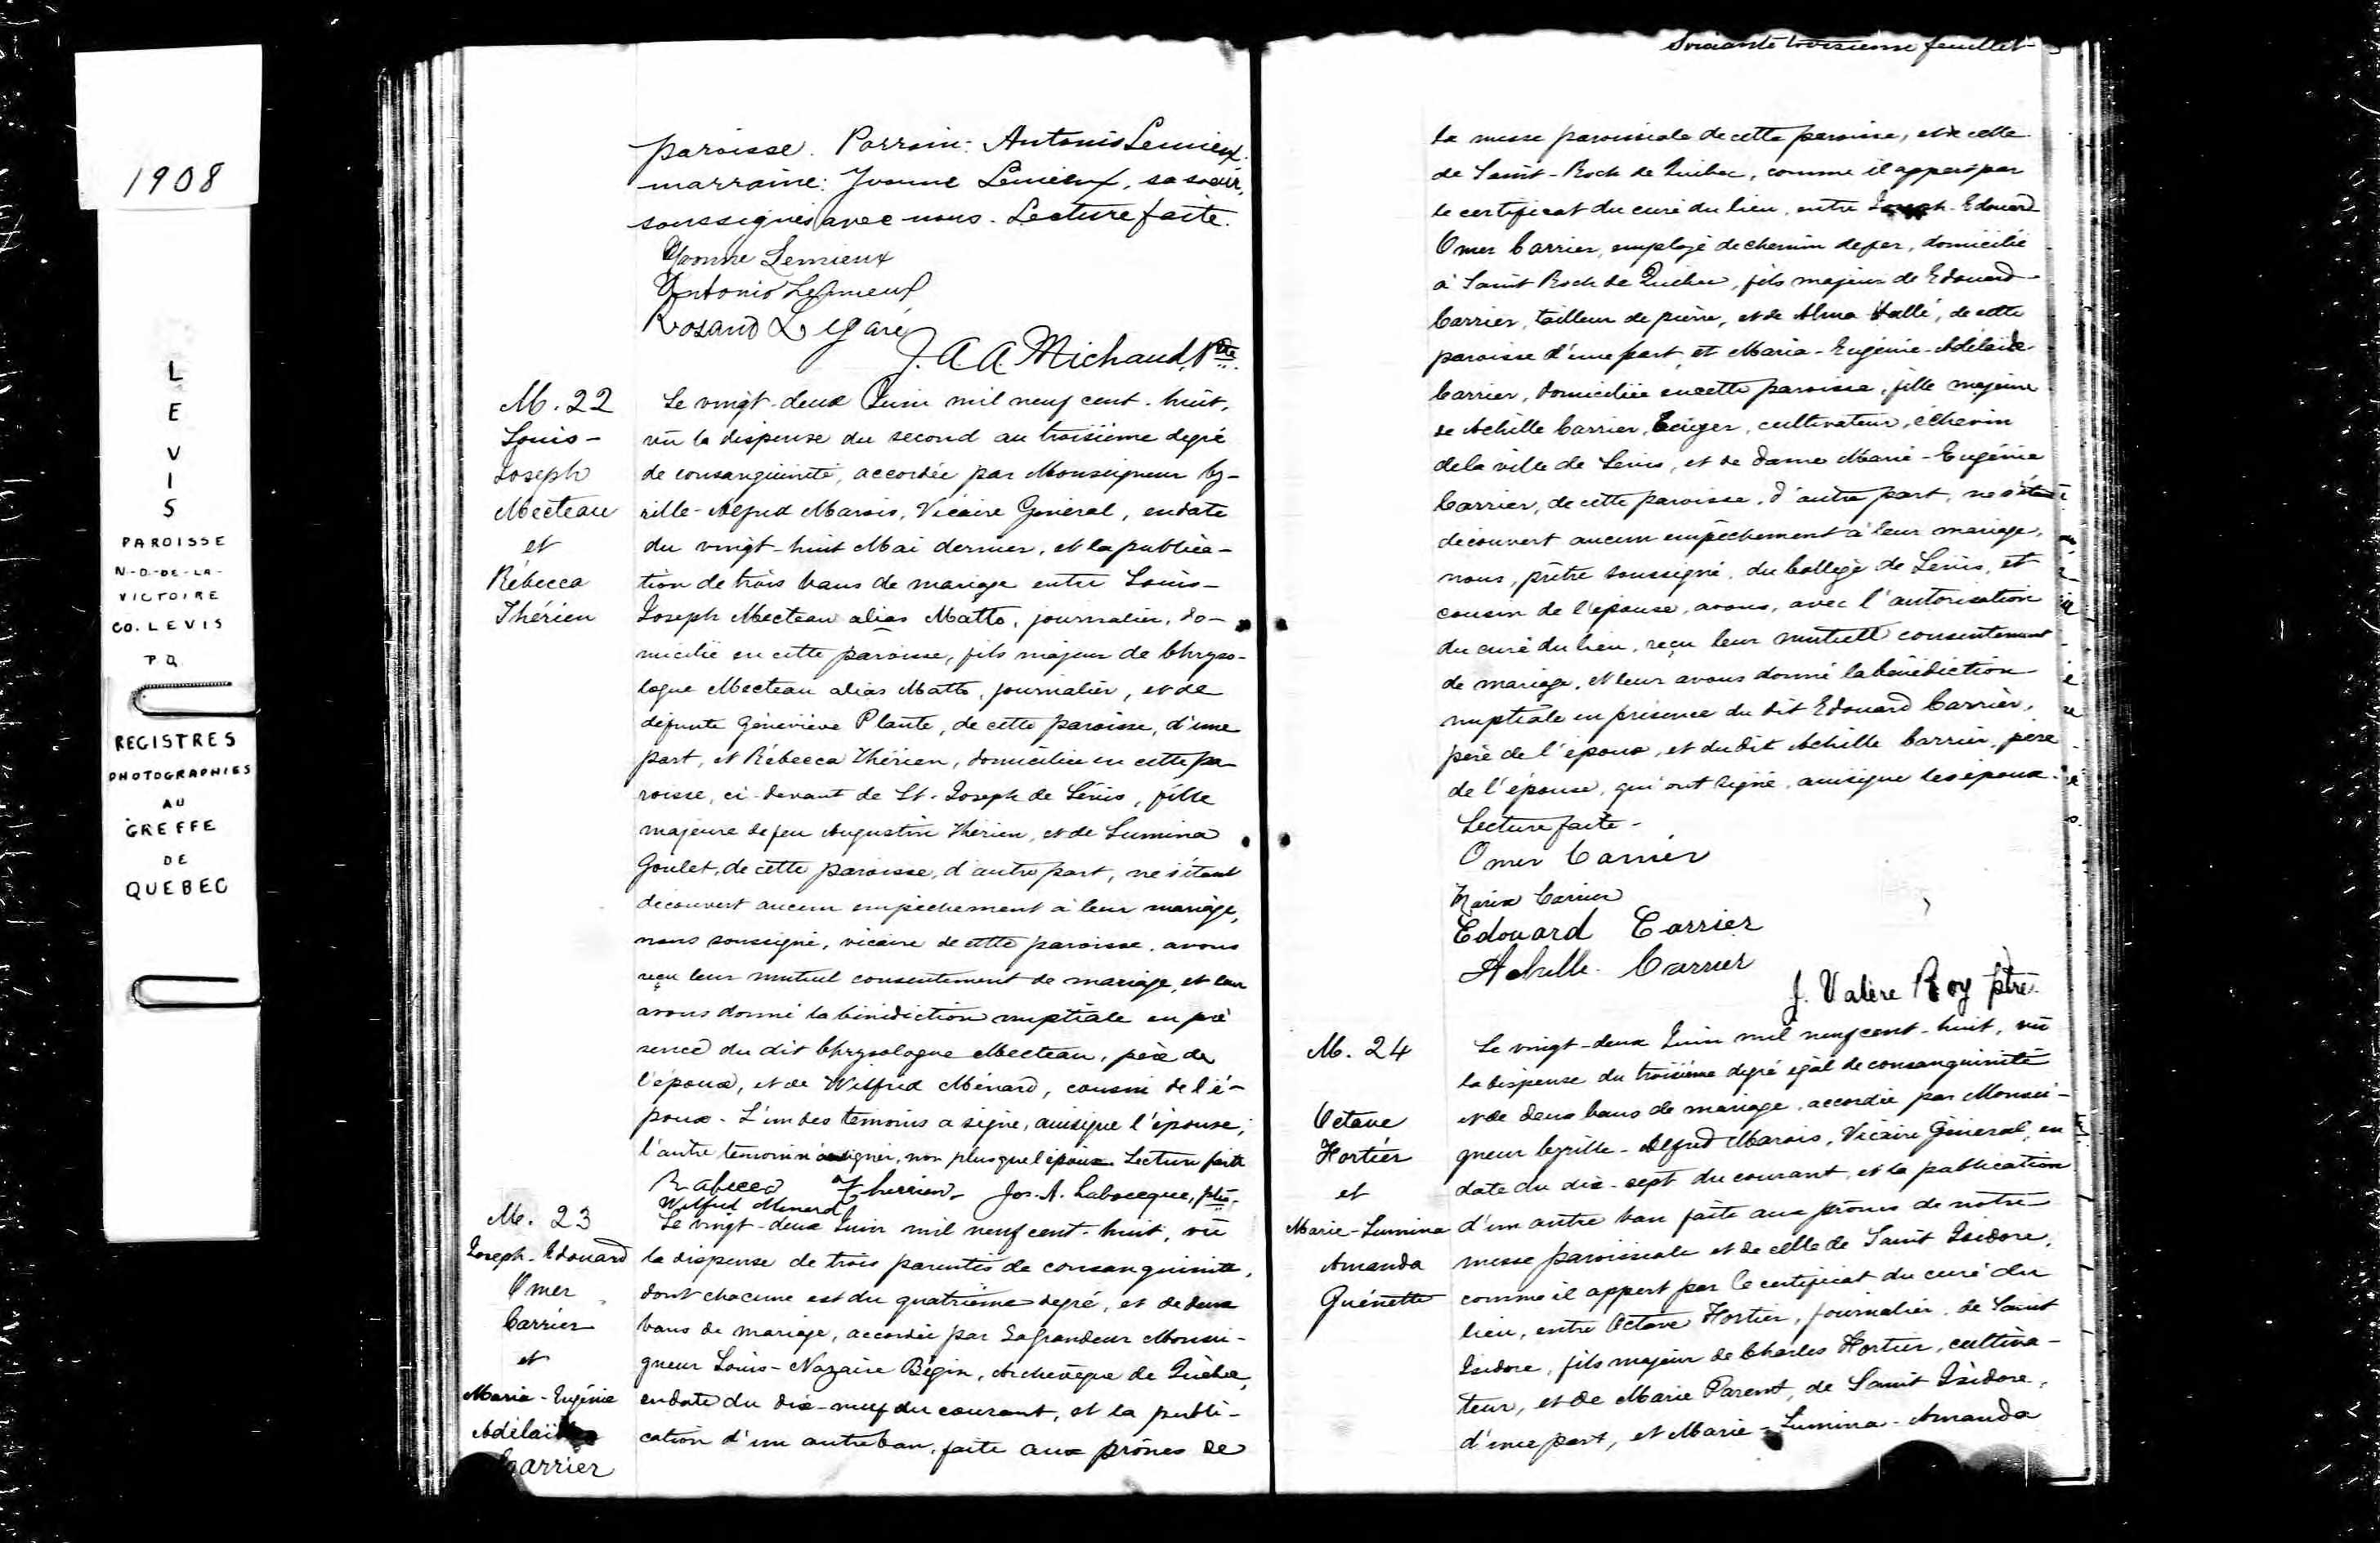 1908
L
E
V
I
S
PAROISSE
N-D-DE-LA-
VICTOIRE
CO. LEVIS
P Q
REGISTRES
PHOTOGRAPHIES
AU
GREFFE
DE
QUEBEC
paroisse. Parrain: Antonio Lemieux.
marraine: Yvonne Lemieux, sa soeur,
soussignés avec nous. Lecture faite.
Yvonne Lemieux
Antonio Lemieux
Rosario Légaré
J. A. A. Michaud, Ptre
M. 22
Louis-
Joseph
Mecteau
et
Rébecca
Thérien
Le vingt-deux Juin mil neuf cent-huit,
vû la dispense du second au troisième degré
de consanguinité, accordée par Monseigneur Cy-
rille-Alfred Marois, Vicaire Général, en date
du vingt-huit Mai dernier, et la publica-
tion de trois bans de mariage entre Louis-
Joseph Mecteau alias Matte, journalier, do-
micilié en cette paroisse, fils majeur de Chryso-
logue Mecteau alias Matte, journalier, et de
défunte Géneviève Plante, de cette paroisse, d'une
part, et Rébecca Thérien, domiciliée en cette pa-
roisse, ci-devant de St-Joseph de Lévis, fille
majeure de feu Augustin Thérien, et de Lumina
Goulet, de cette paroisse, d'autre part, ne s'étant
découvert aucun empêchement à leur mariage,
nous soussigné, vicaire de cette paroisse, avons
reçu leur mutuel consentement de mariage, et leur
avons donné la bénédiction nuptiale en pré
sence du dit Chrysologue Mecteau, père de
l'époux, et de Wilfrid Ménard, cousin de l'é-
poux. L'un des témoins a signé, ainsique l'épouse;
l'autre témoin n'a signer, non plus que l'époux. Lecture faite
Rabecca Therrien Jos. A. Labrecque, ptre
Wilfrid Menard
M. 23
Joseph-Edouard
Omer
Carrier
et
Maria-Eugénie
Adélaïde
Carrier
Le vingt-deux Juin mil neuf cent-huit, vû
la dispense de trois parentés de consanguinité,
dont chacune est du quatrième degré, et de deux
bans de mariage, accordée par Sa Grandeur Monsei-
gneur Louis-Nazaire Bégin, Archevêque de Québec,
en date du dix-neuf du courant, et la publi-
cation d'un autre ban, faite aux prônes de
Soixante troisième feuillet
la messe paroissiale de cette paroisse, et de celle
de Saint-Roch de Québec, comme il appert par
le certificat du curé du lieu, entre Joseph-Edouard
Omer Carrier, employé de chemin de fer, domicilié
à Saint Roch de Québec, fils majeur de Edouard
Carrier, tailleur de pierre, et de Alma Vallé, de cette
paroisse d'une part, et Maria-Eugénie-Adélaïde
Carrier, domiciliée en cette paroisse, fille majeure
de Achille Carrier, Ecuyer, cultivateur, échevin
de la ville de Lévis, et de dame Marie-Eugénie
Carrier, de cette paroisse, d'autre part, ne s'étant
découvert aucun empêchement à leur mariage,
nous, prêtre soussigné, du Collège de Lévis, et
cousin de l'épouse, avons, avec l'autorisation
du curé du lieu, reçu leur mutuel consentement
de mariage, et leur avons donné la bénédiction
nuptiale en présence du dit Edouard Carrier,
père de l'époux, et du dit Achille Carrier, père
de l'épouse, qui ont signé, ainsique les époux.
Lecture faite-
Omer Carrier
Maria Carrier
Edouard Carrier
Achille Carrier
J. Valère Roy ptre
M. 24
Octave
Fortier
et
Marie-Lumina
Amanda
Guénette
Le vingt-deux Juin mil neuf cent-huit, vû
la dispense du troisième degré égal de consanguinité
et de deux bans de mariage, accordée par Monsei-
gneur Cyrille-Alfred Marois, Vicaire Général, en
date du dix-sept du courant, et la publication
d'un autre ban faite aux prônes de notre
messe paroissiale et de celle de Saint Isidore,
comme il appert par le certificat du curé du
lieu, entre Octave Fortier, journalier, de Saint
Isidore, fils majeur de Charles Fortier, cultiva-
teur, et de Marie Parent, de Saint Isidore,
d'une part, et Marie-Lumina-Amanda